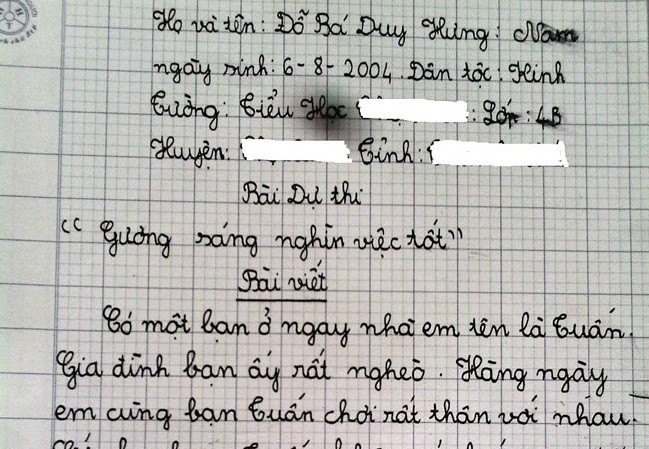 Họ và tên: Đỗ Bá Duy Hưng: Nam
ngày sinh: 6-8-2004. Dân tộc: Kinh
Trường: Tiểu Học : Lớp: 4B
Huyện: Tỉnh:
Bài Dự thi
“Gương sáng nghìn việc tốt”
Bài viết
Có một bạn ở ngay nhà em tên là Tuấn.
Gia đình bạn ấy rất nghèo. Hàng ngày
em cùng bạn Tuấn chơi rất thân với nhau.